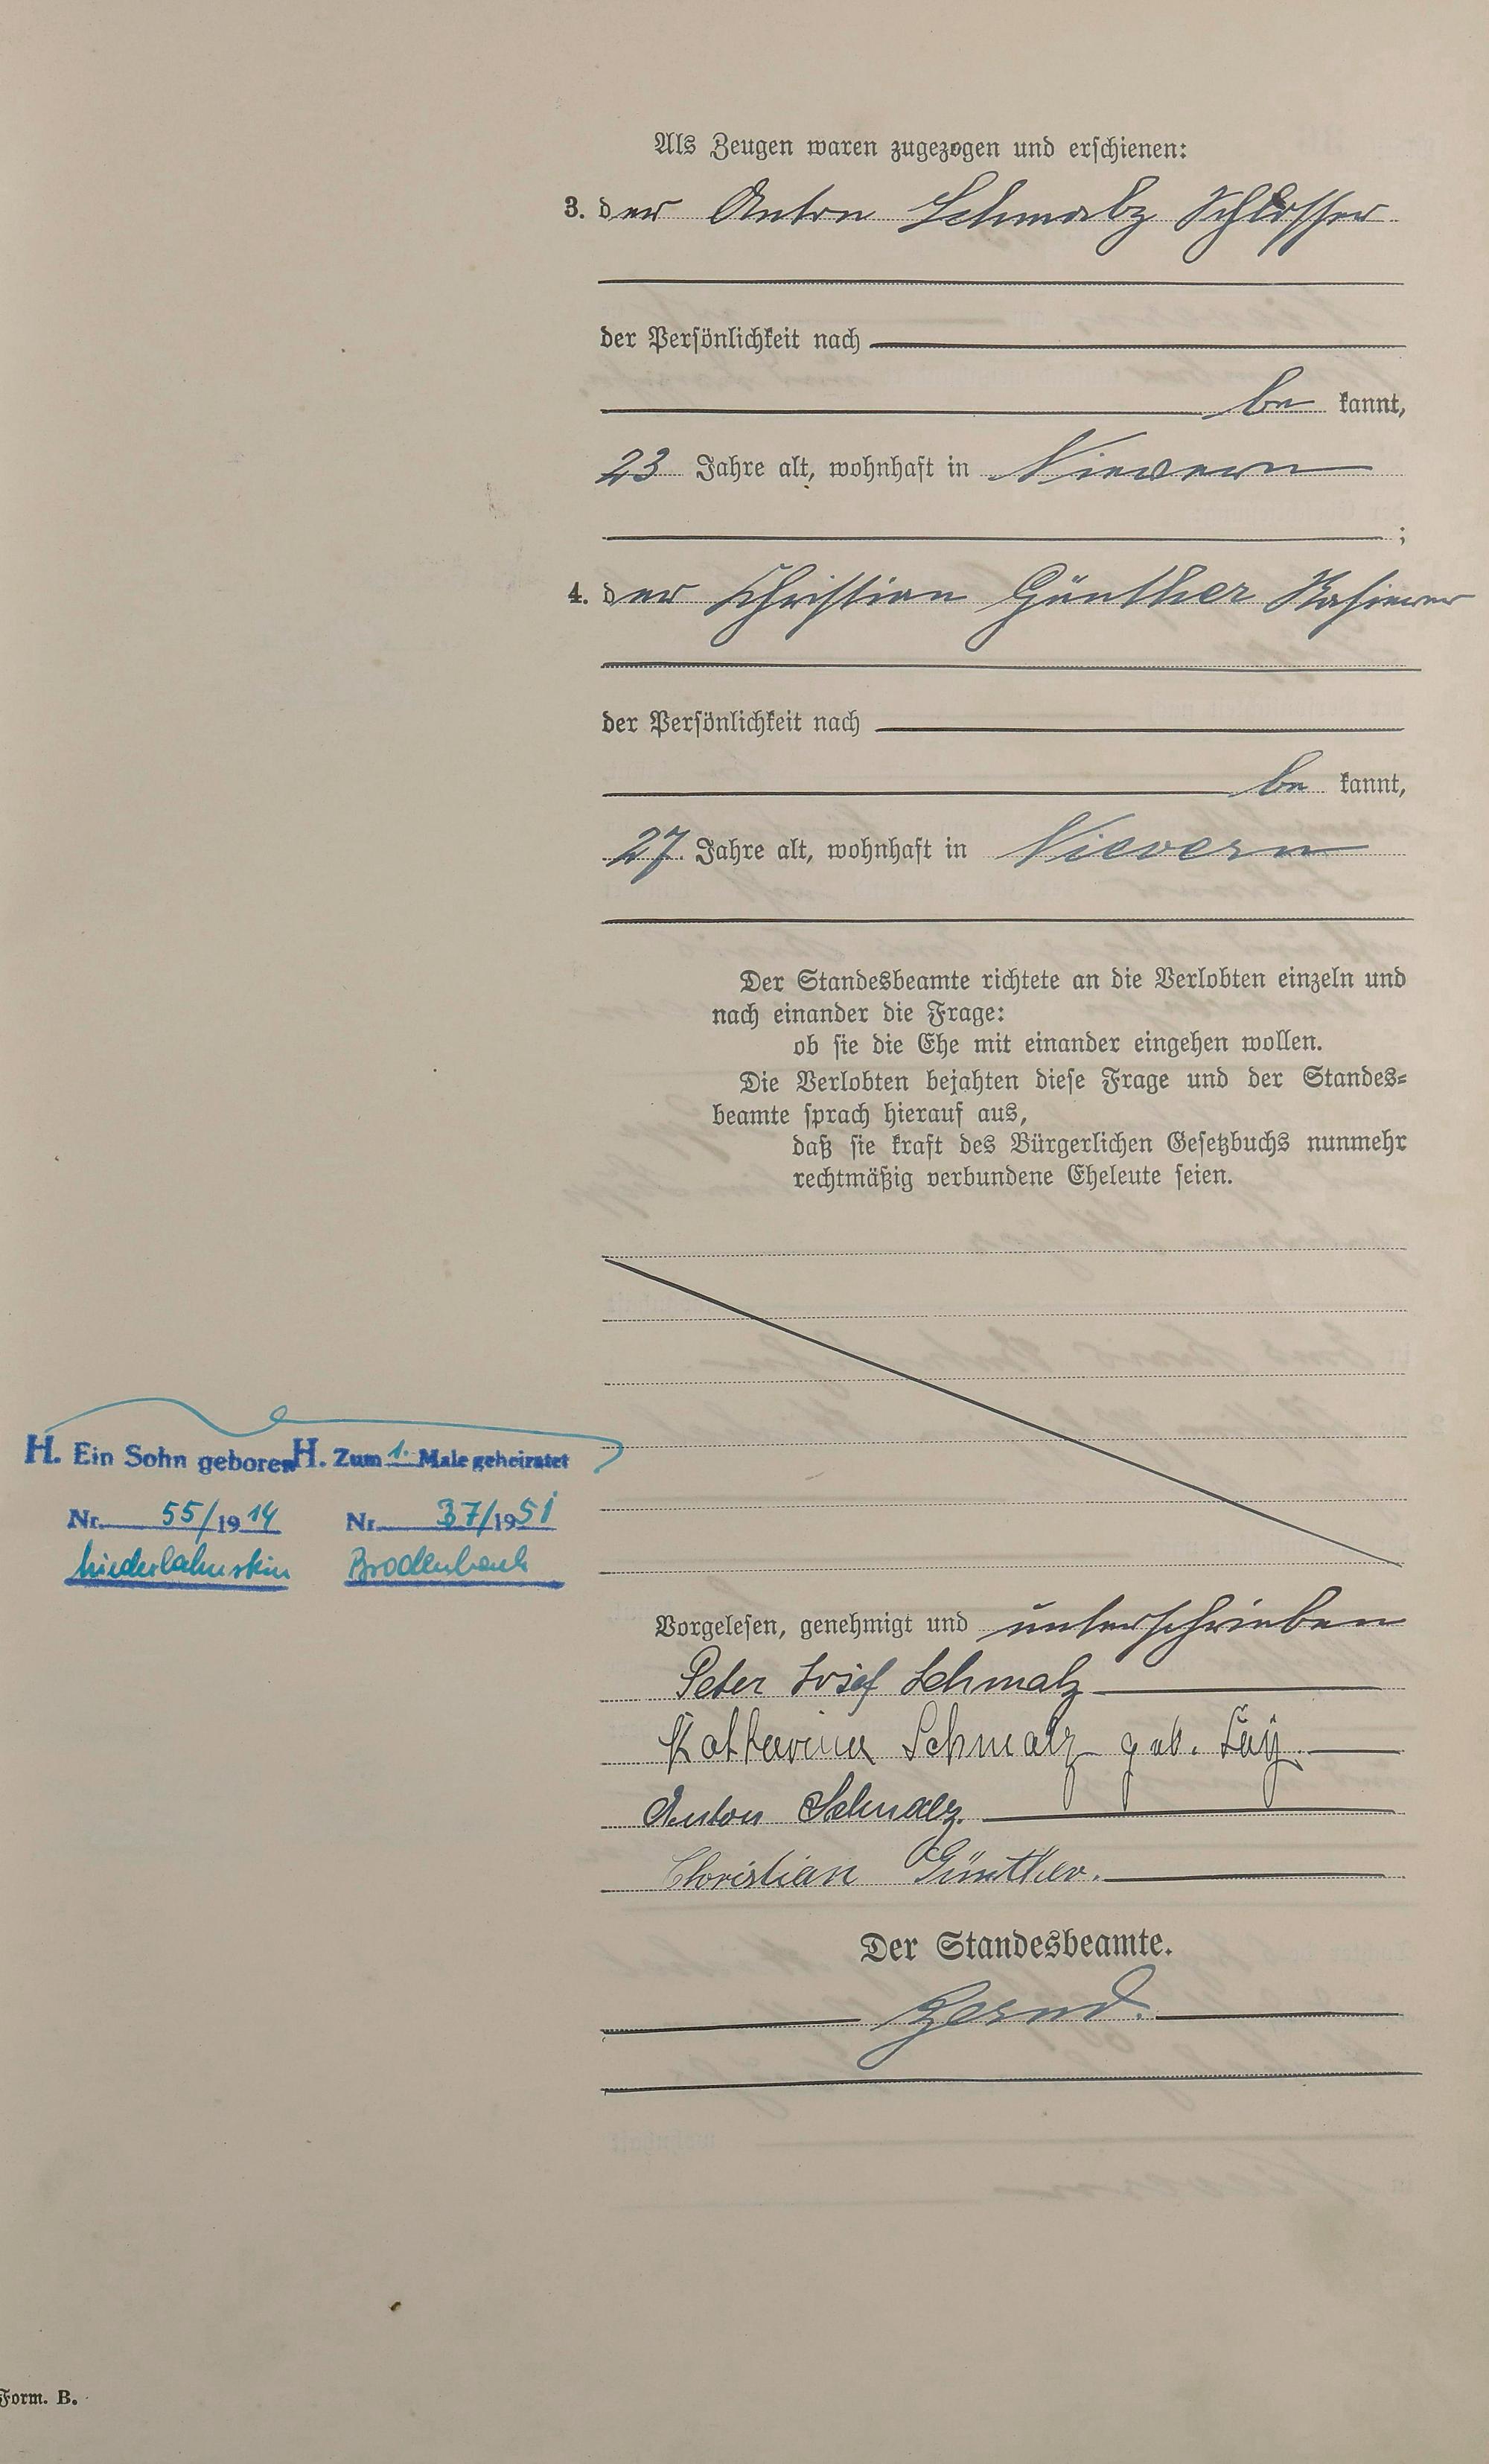 Als Zeugen waren zugezogen und erschienen:
3. der Anton Schmalz Schlosser
der Persönlichkeit nach
be kannt,
23 Jahre alt, wohnhaft in Nievern
;
4. der Christian Günther
der Persönlichkeit nach
be kannt,
27 Jahre alt, wohnhaft in Nievern
Der Standesbeamte richtete an die Verlobten einzeln und
nach einander die Frage:
ob sie die Ehe mit einander eingehen wollen.
Die Verlobten bejahten diese Frage und der Standes-
beamte sprach hierauf aus,
daß sie kraft des Bürgerlichen Gesetzbuchs nunmehr
rechtmäßig verbundene Eheleute seien.
H. Ein Sohn geboren
Nr. 55/1914
Niederlahnstein
H. Zum 1. Male geheiratet
Nr. 37/1951
Brodenbach
Vorgelesen, genehmigt und unterschrieben
Peter Josef Schmalz
Katharina Schmalz geb. Laÿ.
Anton Schmalz.
Christian Günther.
Der Standesbeamte.
Form. B.